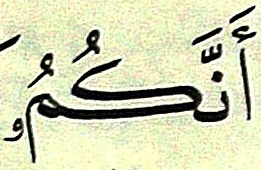 أَنَّكُمُۥ